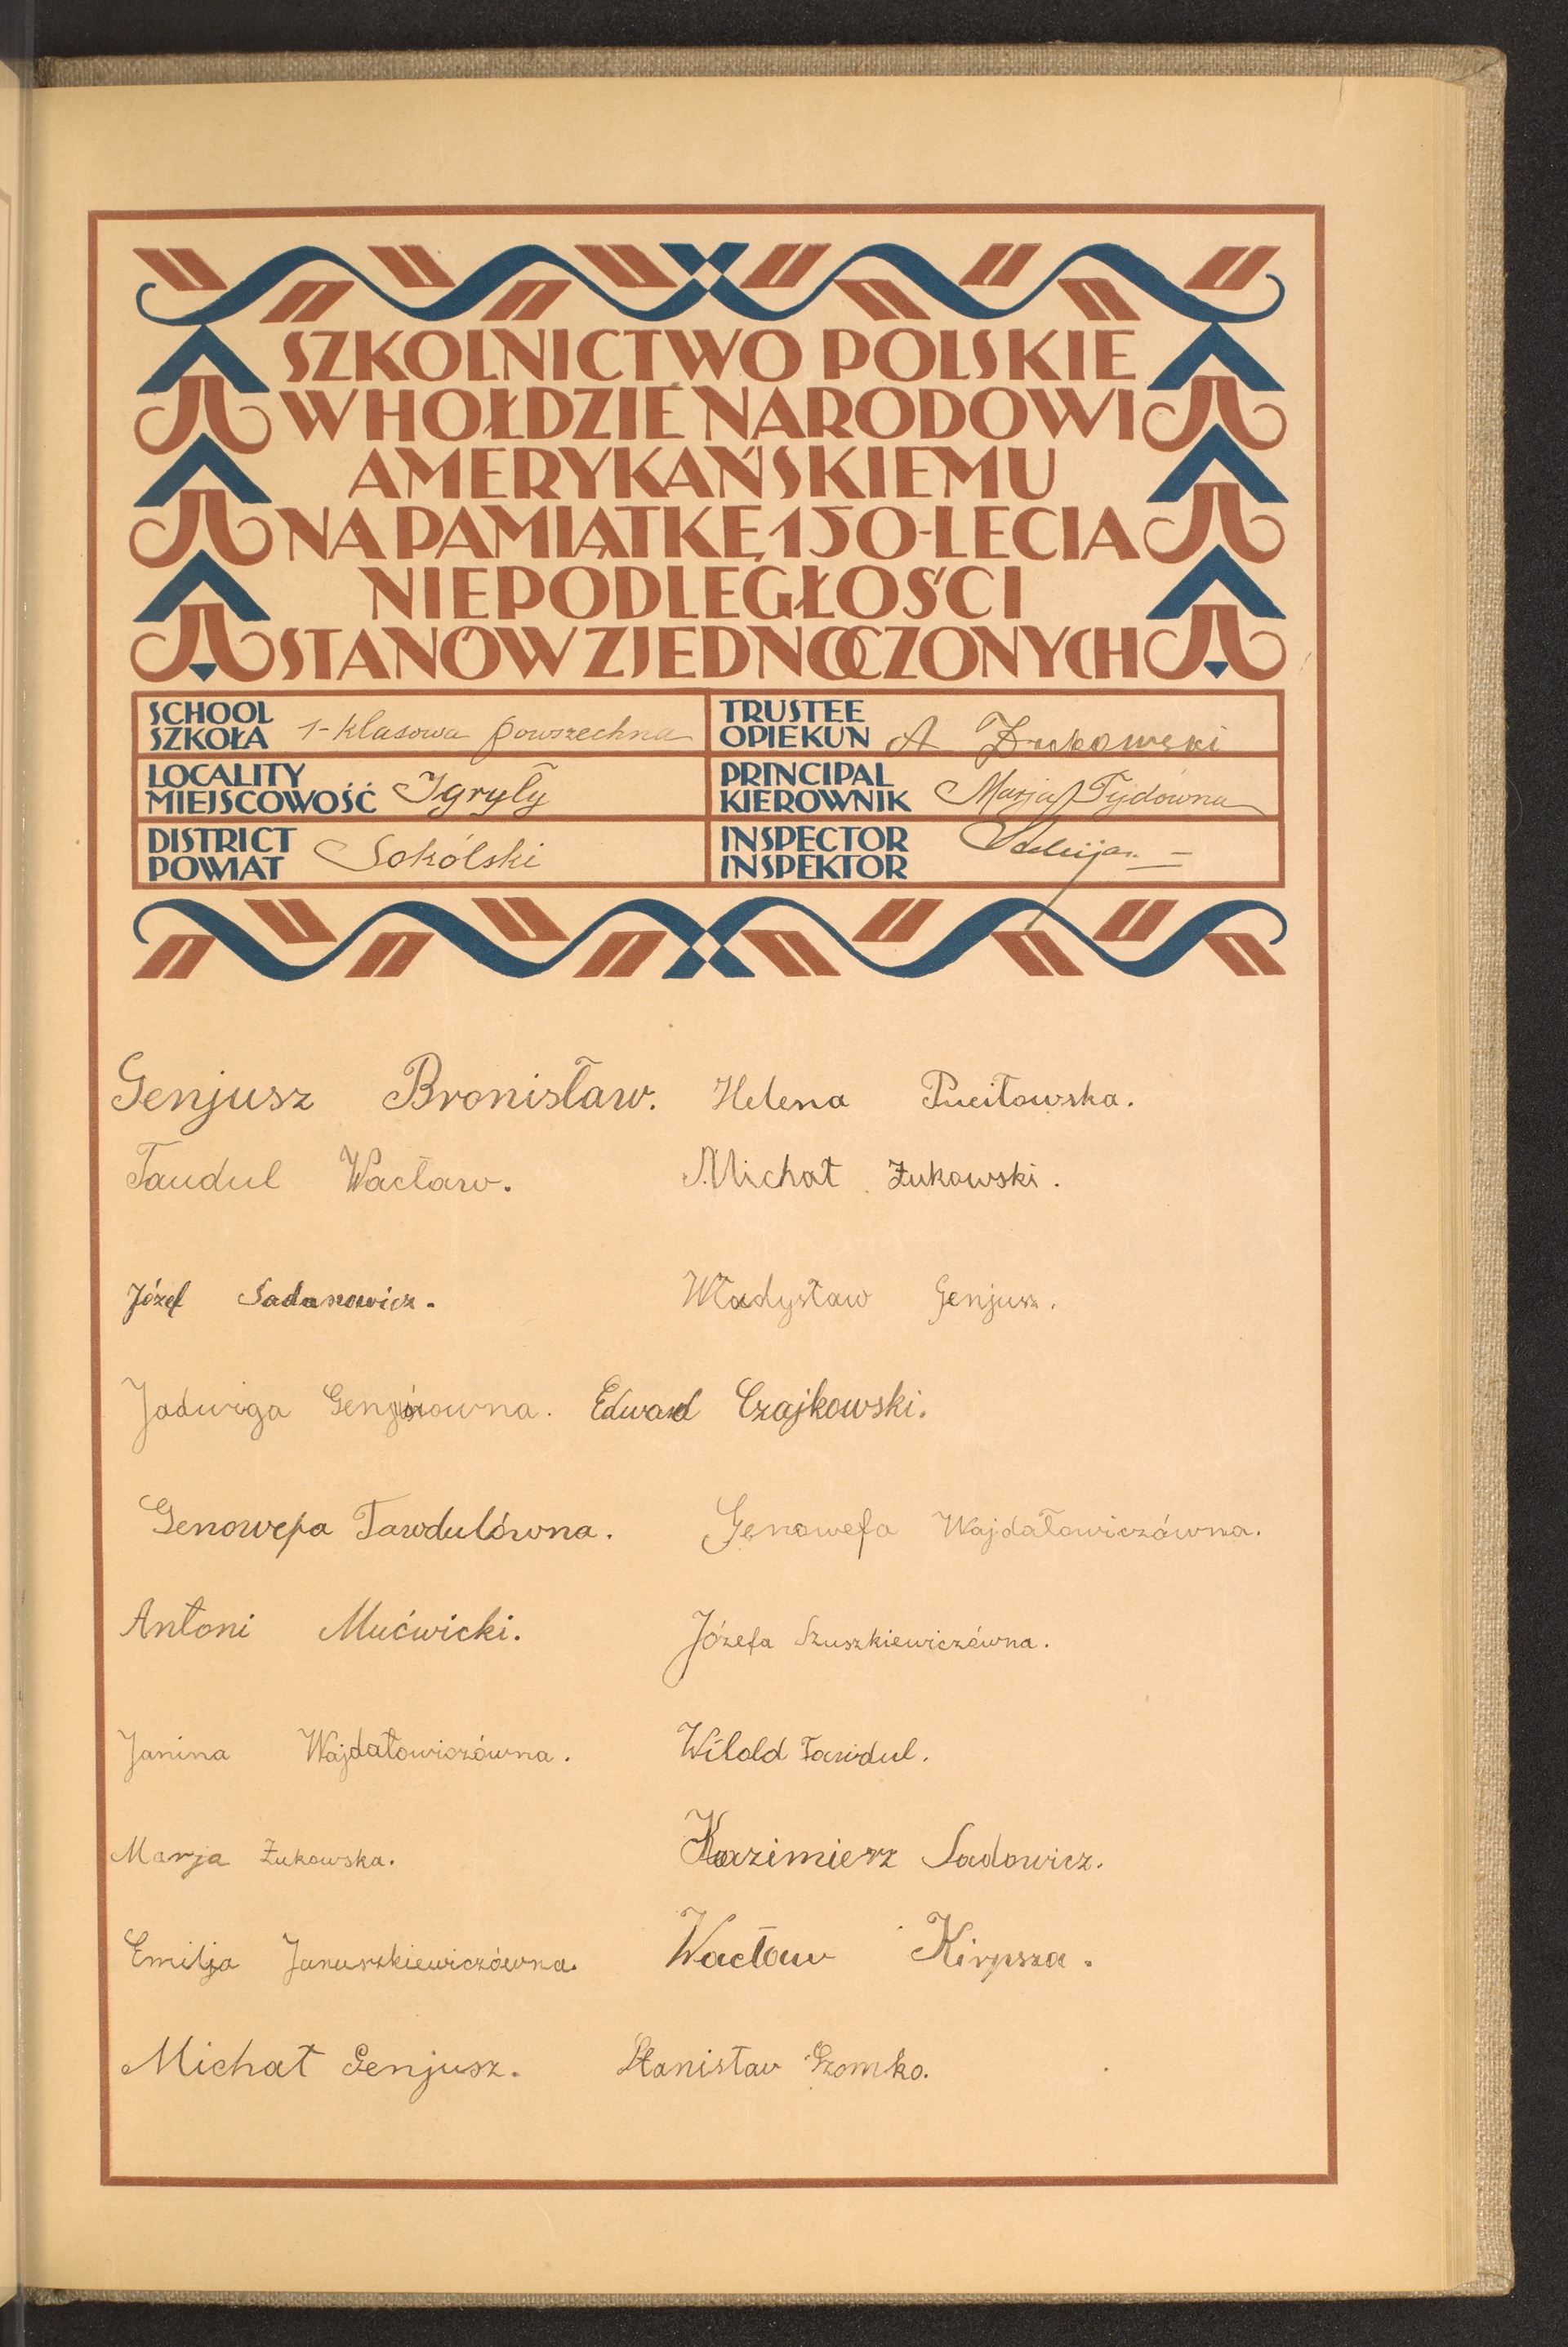 SZKOLNICTWO POLSKIE
W HOŁDZIE NARODOWI
AMERYKAŃSKIEMU
NA PAMIĄTKĘ 150-LECIA
NIEPODLEGŁOŚCI
STANÓW ZJEDNOCZONYCH
SCHOOL
SZKOŁA 1-klasowa powszechna
TRUSTEE
OPIEKUN A Żukowski
LOCALITY
MIEJSCOWOŚĆ Igryły
PRINCIPAL
KIEROWNIK Marja Tydówna
DISTRICT
POWIAT Sokólski
INSPECTOR
INSPEKTOR
Genjusz Bronisław. Helena Puciłowska.
Taudul Wacław. Michał Żukowski.
Józef Sadanowicz. Władysław Genjusz.
Jadwiga Edward Czajkowski.
Genowefa Tawdulówna. Genowefa Wajdałowiczówna.
Antoni Mućwicki. Józefa Szuszkiewiczówna.
Janina Wajdałowiczówna. Witold Tawdul.
Marja Żukowska. Kazimierz Sadowicz.
Emilja Januszkiewiczówna. Wacław Kirpsza.
Michał Genjusz. Stanisław Szomko.